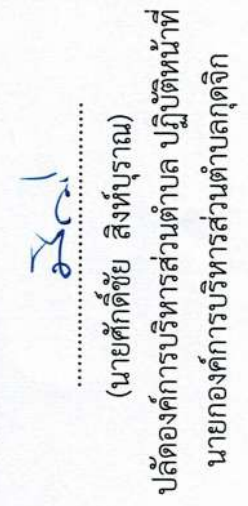 ........................................
(นายศักดิ์ชัย สิงห์บุราณ)
ปลัดองค์การบริหารส่วนตำบล ปฏิบัติหน้าที่
นายกองค์การบริหารส่วนตำบลกุดจิก